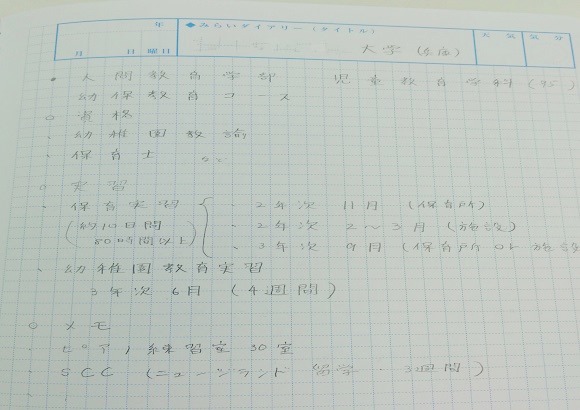 年
◆みらいダイアリー（タイトル）
天 気
気 分
月 日 曜日
大学
・人間教育学部 児童教育学科
幼保教育コース
○ 資格
・幼稚園教諭
・保育士
○ 実習
・保育実習
・2年次 11月 (保育所)
(約10日間
80時間以上)
・2年次 2～3月 (施設)
・3年次 9月 (保育所 or 施設
・幼稚園教育実習
3年次 6月 (4週間)
○ メモ
・ピアノ練習室 30室
・SCC (ニュージランド 留学・3週間)